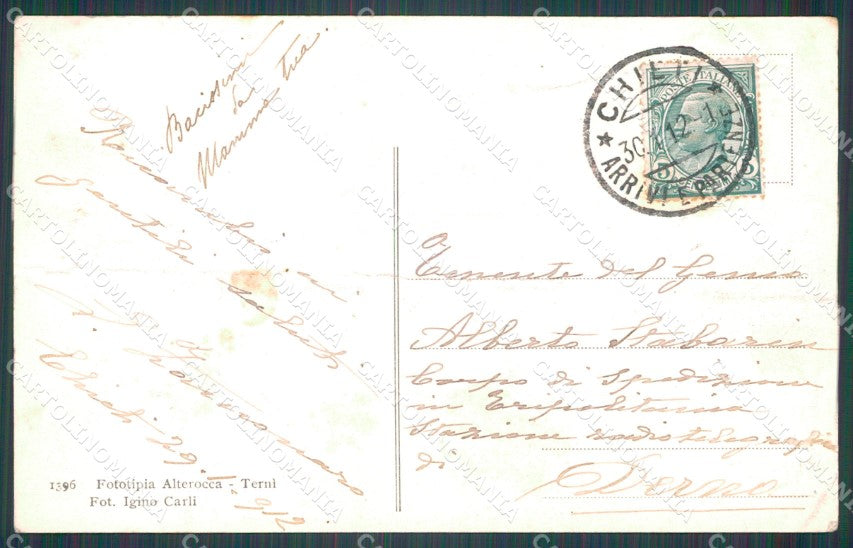 Baciosini
da
Mamma tua
Ricambio i
gentili saluti
Chieti 29-1-912
1396 Fototipia Alterocca - Terni
Fot. Igino Carli
CHIETI
30 1 12-1
ARRIVI E PARTENZE
POSTE ITALIANE
5
Tenente del Genio
Alberto Stabarin
Corpo di Spedizione
in Tripolitania
Stazione radiotelegrafica
di Derna
CARTOLINOMANIA